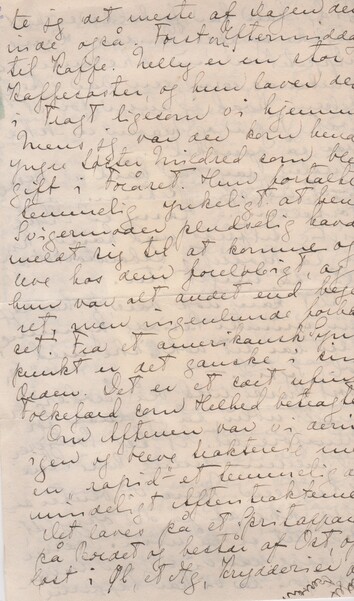 te sig det meste af Dagen der
inde også. Først om Eftermidda
til Kaffe. Nelly er en stor
Kaffesøster, og hun laver den
i Tragt ligesom vi hjemme
Mens jeg var der kom hende
yngre Søster Mildred som ble
gift i Foråret. Hun fortalte
temmelig ynkeligt at hen
Svigermoder pludselig havde
meldt sig til at komme og
leve hos dem foreløbigt, og
hun var alt andet end bege
ret, men ingenlunde forba
set. Fra et amerikansk Syns
punkt er det ganske i sin
Orden. Det er et sært
Folkefærd som Helhed betragte
Om Aftenen var vi derin
igen og blev trakterede m
en "rapid" et temmelig a
mindeligt Aftentraktemen
Det laves på et Spritappar
på Bordet og består af Ost, op
løst i Øl, et Æg, Krydderier o